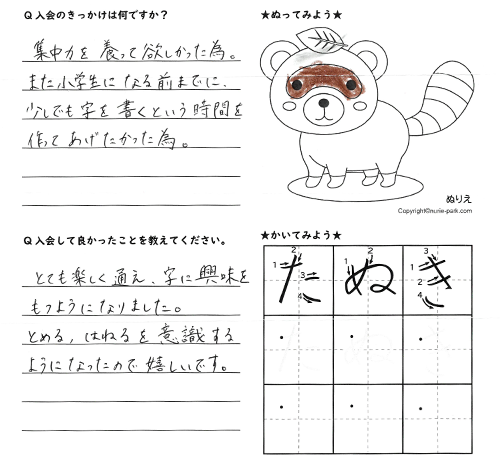 Q 入会のきっかけは何ですか？
集中力を養って欲しかった為。
また小学生になる前までに、
少しでも字を書くという時間を
作ってあげたかった為。
★ぬってみよう★
ぬりえ
Copyright©nurie-park.com
Q 入会して良かったことを教えてください。
とても楽しく通え、字に興味を
もつようになりました。
とめる，はねるを意識する
ようになったので嬉しいです。
★かいてみよう★
た ぬ き
1 2 3 4 1 2 1 2 3 4